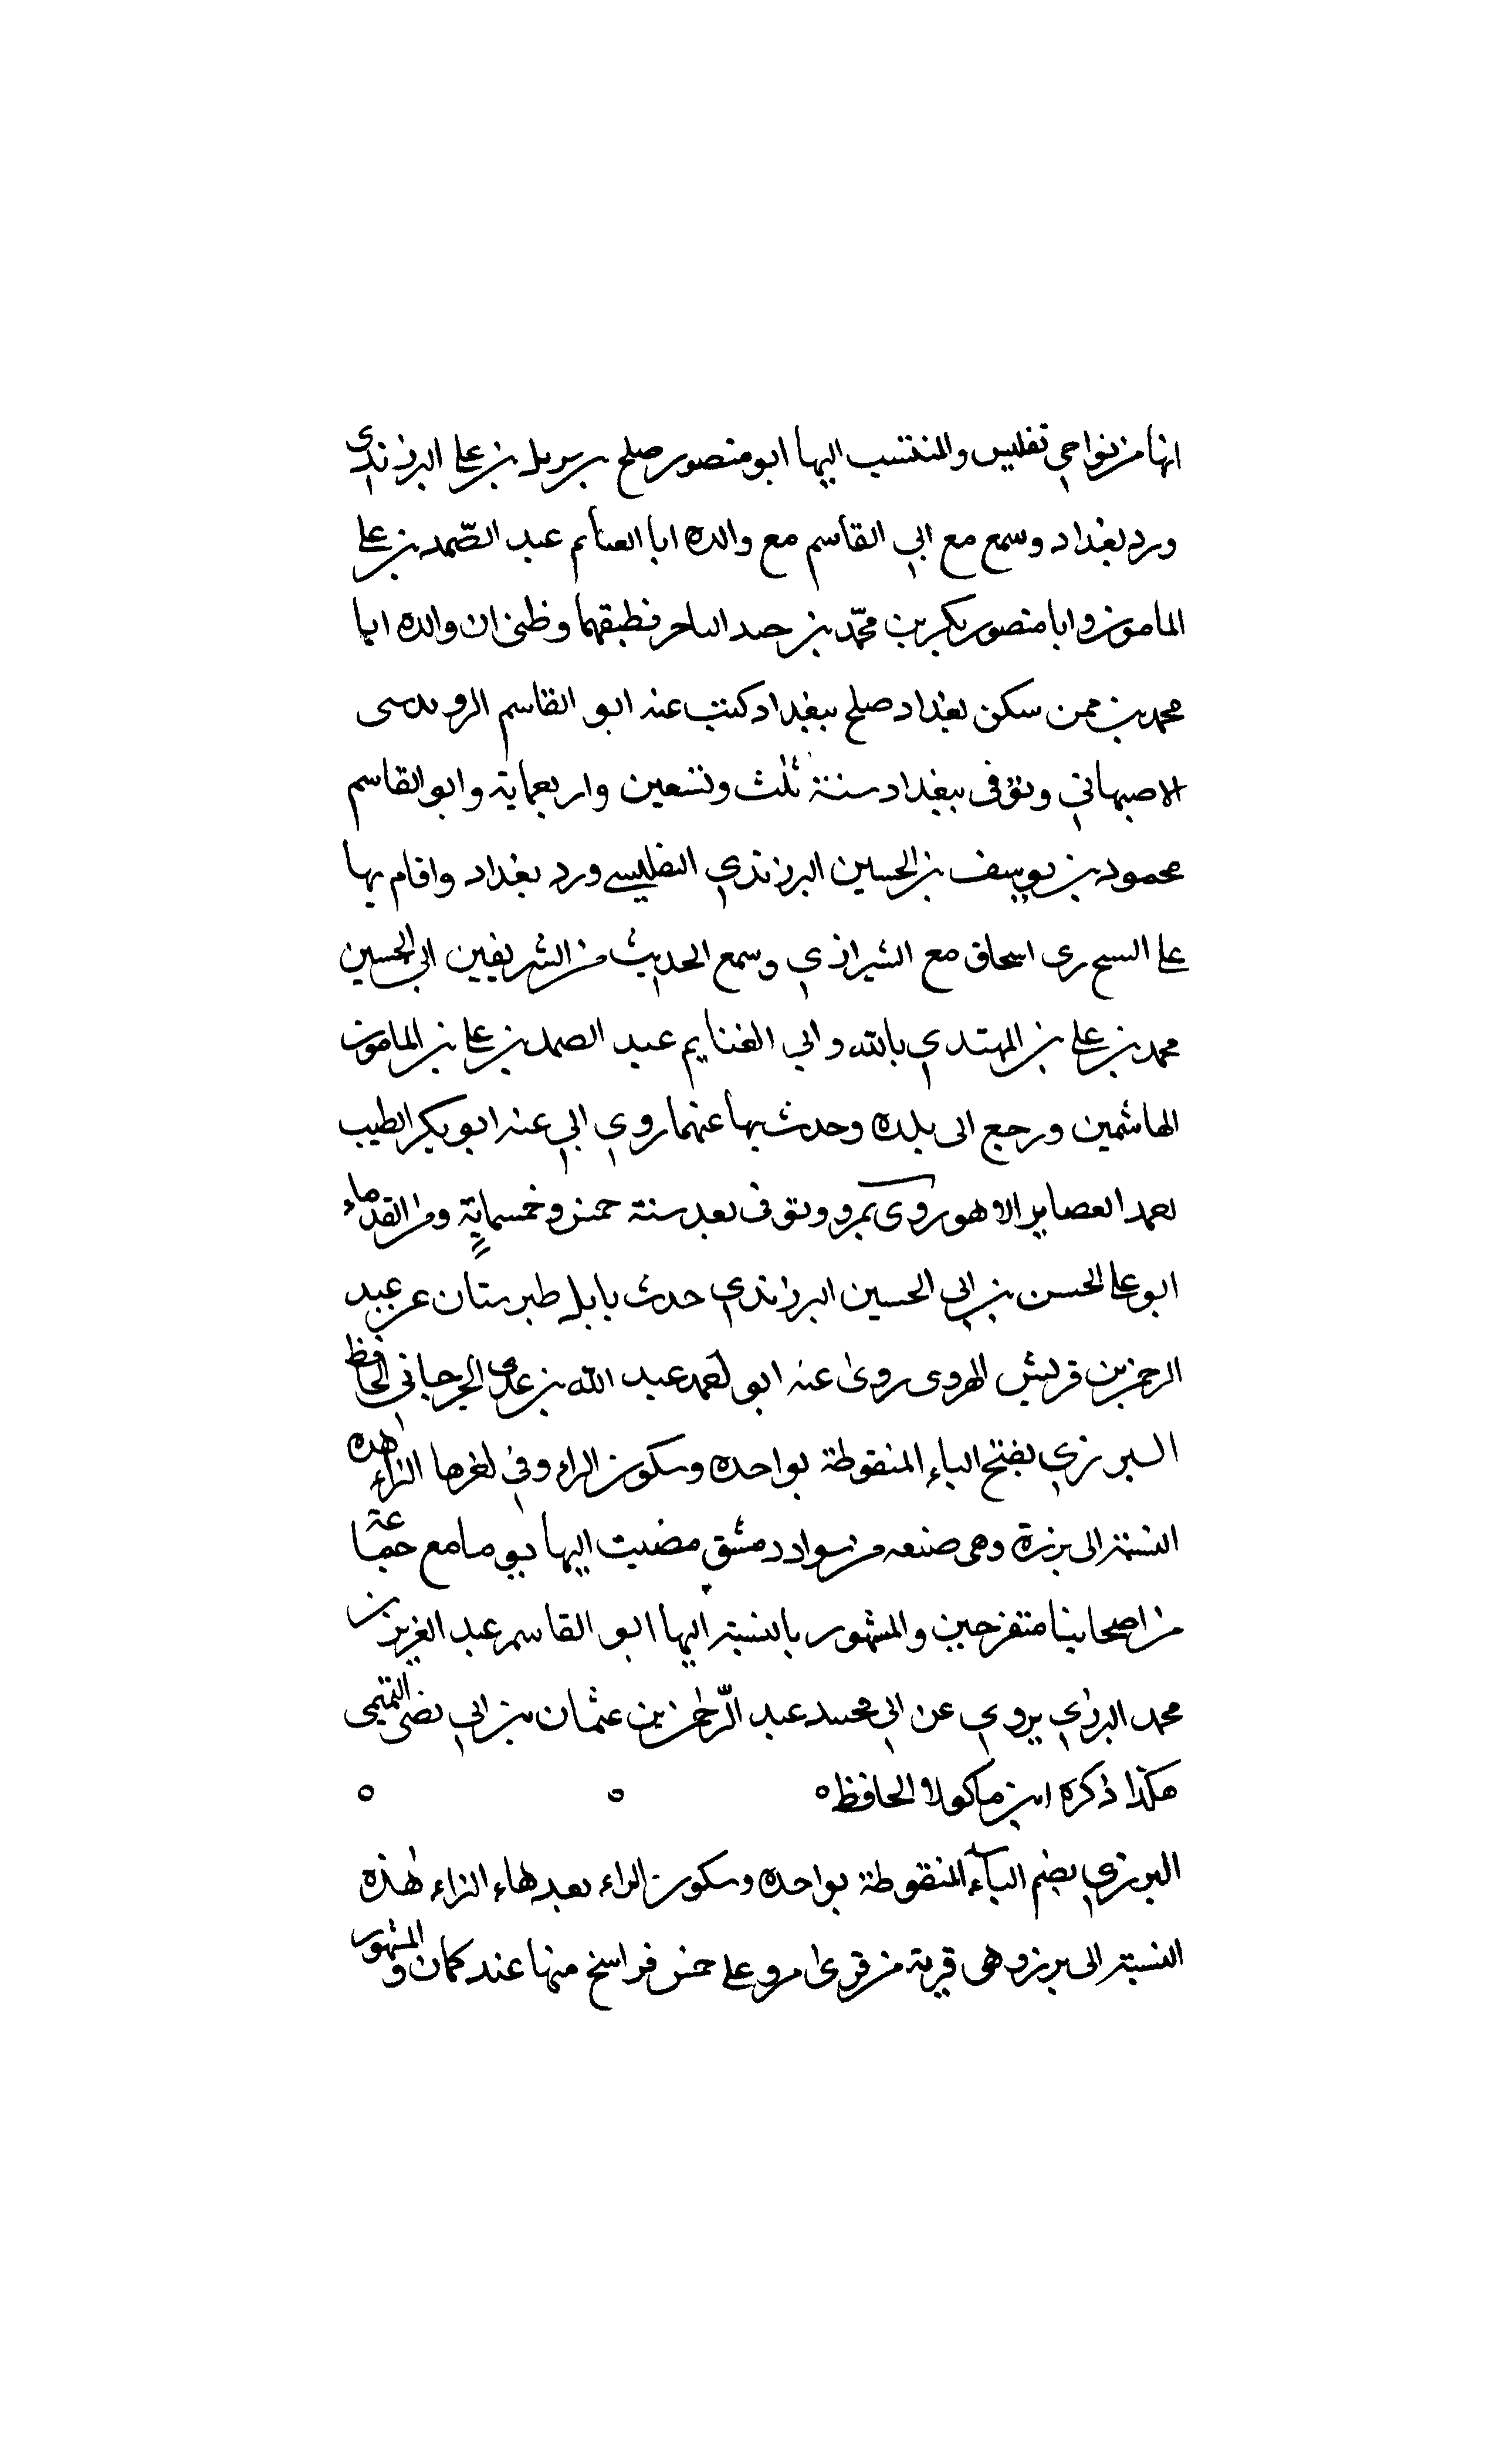 انها من نواحي تفليس والمنتسب اليها ابو منصور صلح بن بديل بن علي البرزندي
ورد بغداد وسمع مع ابي القاسم مع والده ابا العنائم عبد الصّمد بن علي
المامون وابا منصور بكر بن محمّد بن حيد فطبقهما وظني ان والده ابا
محمد بن ممن سكن بغداد صلح ببغداد كتب عنه ابو القاسم الرويدسى
الاصبهاني وتوفى ببغداد سنة ثلث وتسعين واربعماية وابو القاسم
محمود بن يوسف بن الحسين البرزندي التفليسي ورد بغداد واقام بها
على اسحاق مع الشيرازي وسمع الحديث من الشريفين ابي الحسين
محمد بن علي بن المهتدي بالله وابي الغنايم عبد الصمد بن علي بن المامون
الهاشمين ورجع الى بلده وحدث بها عنهما روي ابي عنه ابو بكر الطيب
العصايرى الاهوروى بمرو وتوفى بعد سنة خمس وخمسماية ومن القدماء
ابو على الحسن بن ابي الحسين البرزندي حدث بابل طبرستان عن عبيد
الرحمن بن قريش الهروى روى عنه ابو احمد عبد الله بن عدى الجرجاني الحافظ
البرزي بفتح الباء المنقوطة بواحده وسكون الراء وفي اخرها الزاء هذه
النسبة الى برزة وهى ضيعه من سواد دمشق مضيت اليها يوما مع جماعة
من اصحابنا متفرجين والمشهور بالنسبة اليها ابو القاسم عبد العزيز بن
محمد البرزي يروي عن ابي محمد عبد الرّحمن بن عثمان بن ابي نصر التميمى
هكذا ذكره ابن ماكولا الحافظ ه ه ه
البرزي بضم الباء المنقوطة بواحده وسكون الراء بعدهاء الزاء هذه
النسبة الى برزو هى قرية من قرى مرو على خمس فراسخ منها عند كمان والمشهور